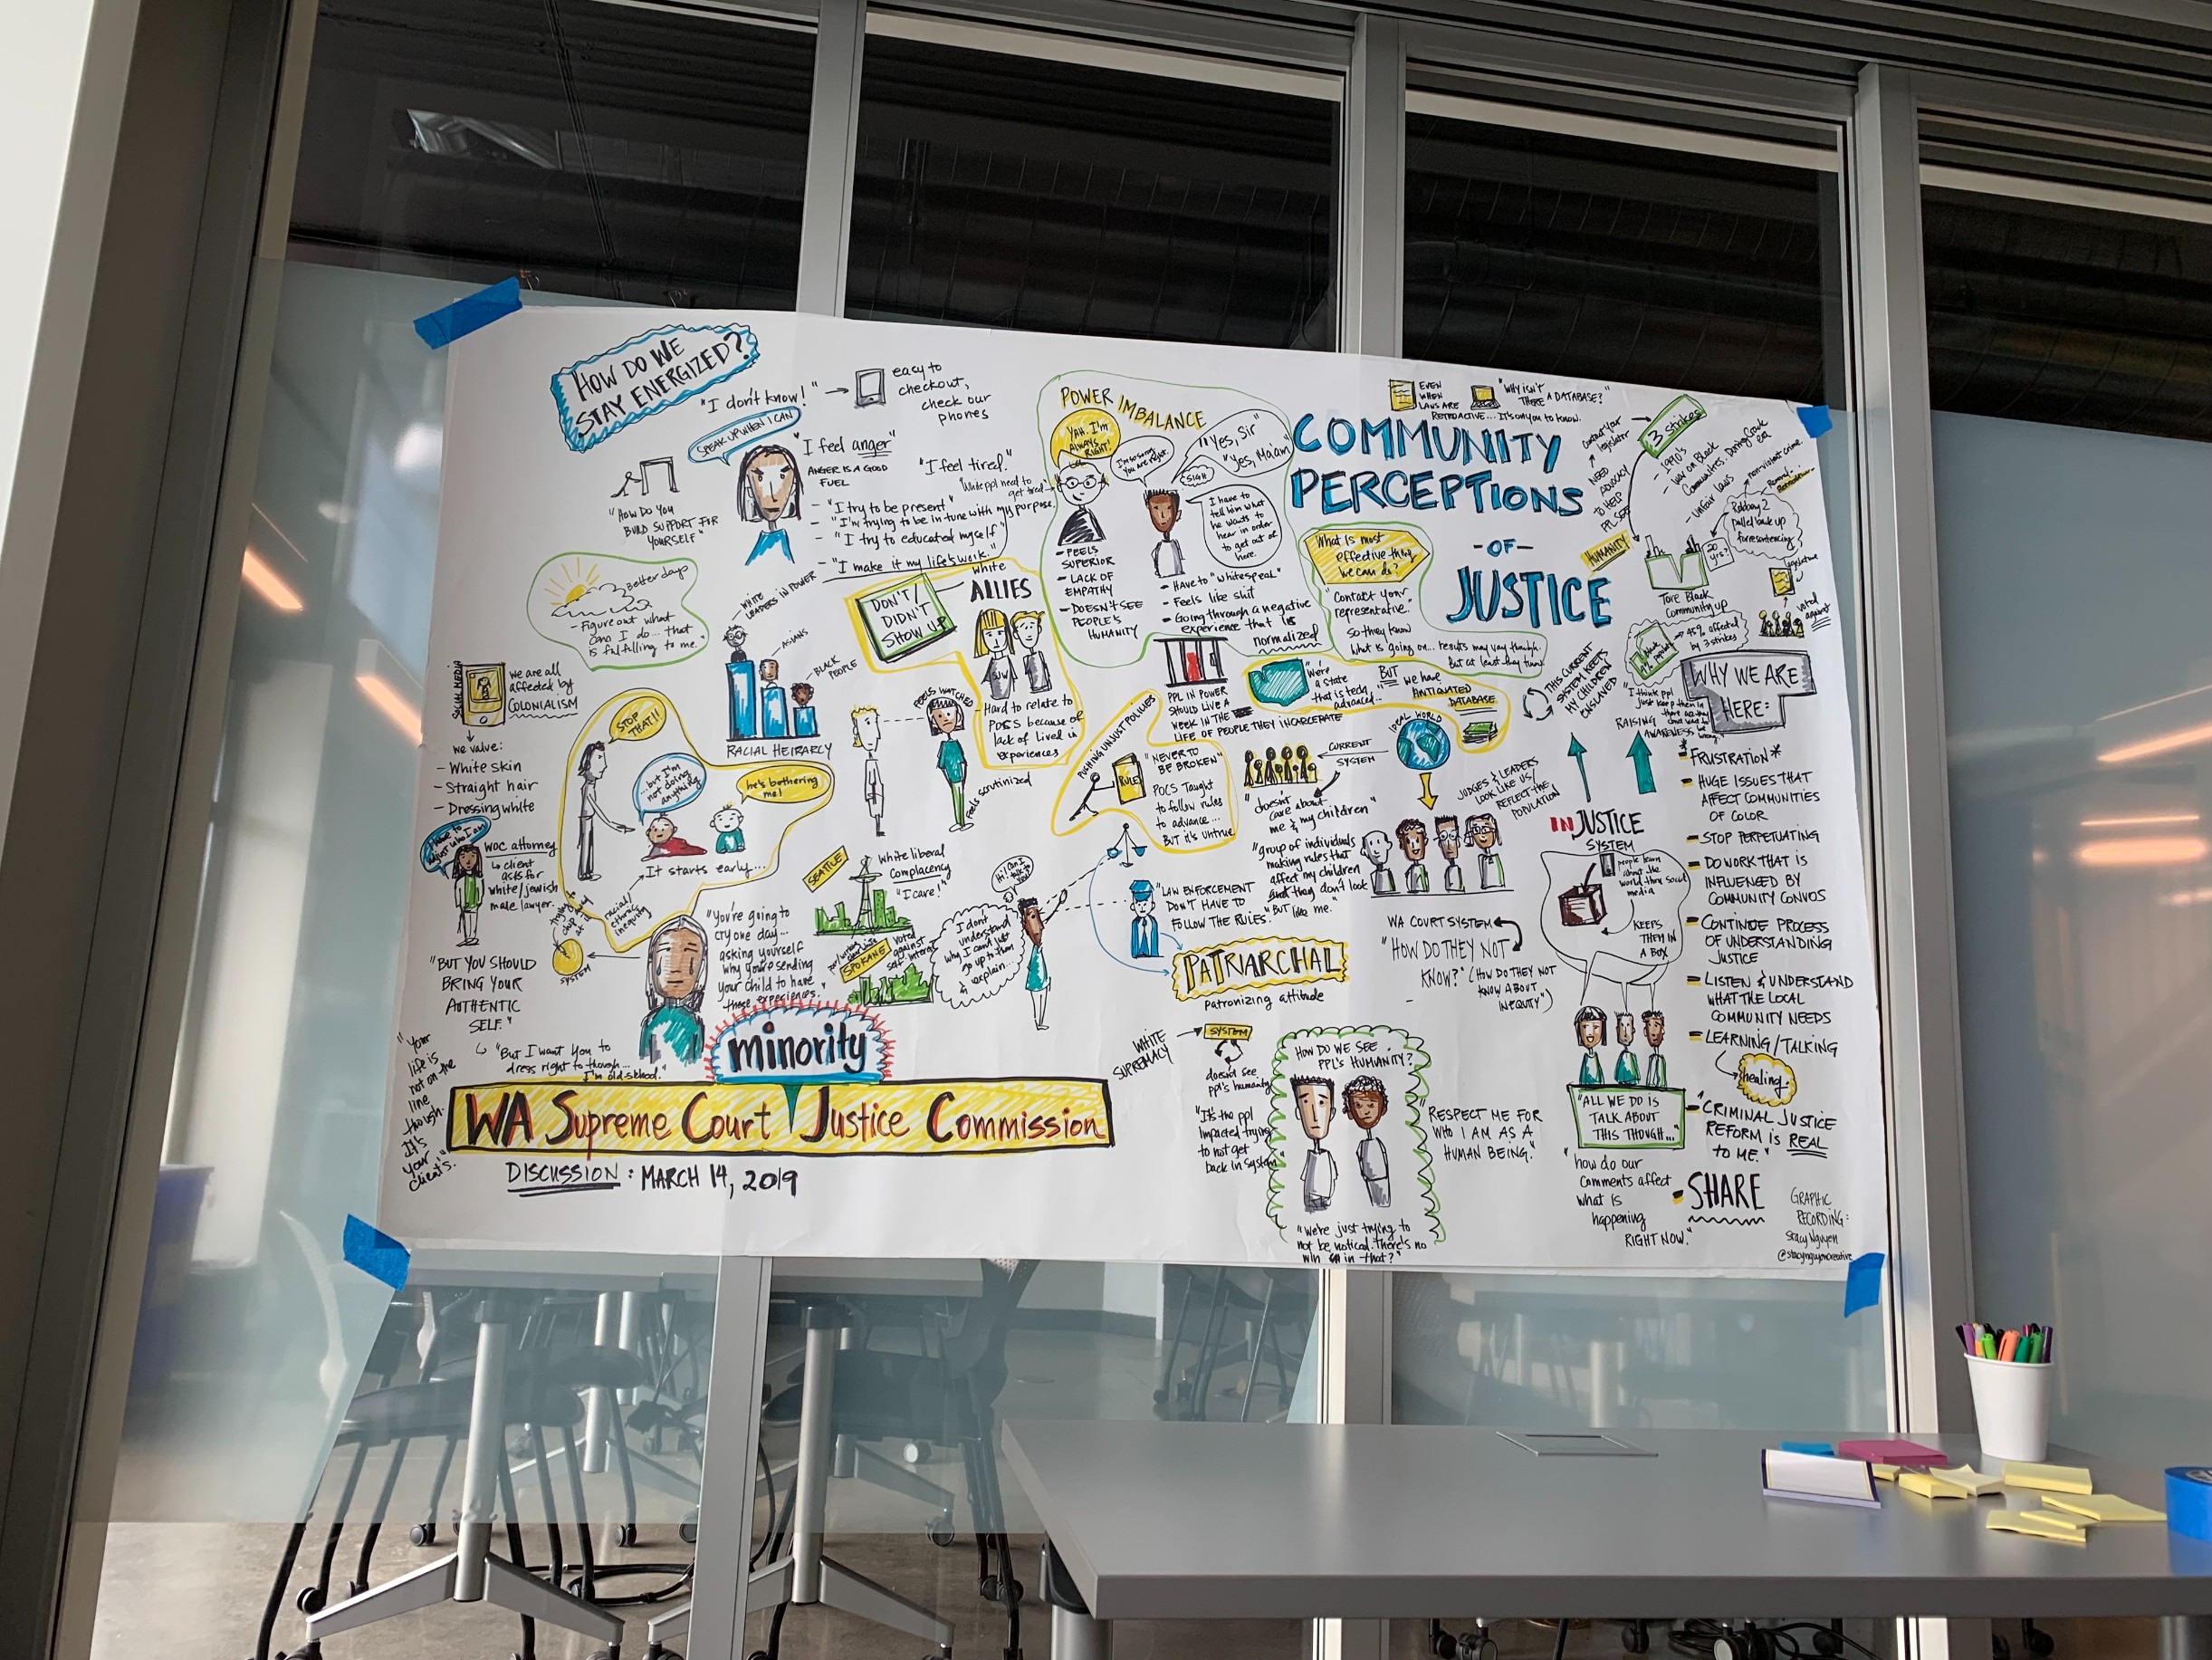 HOW DO WE
STAY ENERGIZED?
"I don't know!"
easy to
checkout,
check our
phones
SPEAK UP WHEN I CAN
"I feel anger"
ANGER IS A GOOD
FUEL
"I feel tired."
"White ppl need to
get tired"
- "I try to be present"
- "I'm trying to be in tune with my purpose."
- "I try to educated myself"
- "I make it my life's work."
"HOW DO YOU
BUILD SUPPORT FOR
YOURSELF"
Better days
- Figure out what
can I do... that
is fulfilling to me.
SOCIAL MEDIA
we are all
affected by
COLONIALISM
we value:
- White skin
- Straight hair
- Dressing white
WOC attorney
client
acts for
white/jewish
male lawyer.
"BUT YOU SHOULD
BRING YOUR
AUTHENTIC
SELF."
"But I want you to
dress right tho though...
I'm old school."
"Your
life is
not on the
line
though.
It's
your
client's."
STOP
THAT!!
...but I'm
not doing
anything
he's bothering
me!
It starts early...
racial/
ethnic
inequity
SYSTEM
WHITE
LEADERS IN POWER
ASIANS
BLACK
PEOPLE
RACIAL HEIRARCY
DON'T/
DIDN'T
SHOW UP
White
ALLIES
SJW
- Hard to relate to
POCS because of
lack of lived in
experiences
FEELS WATCHED
Feels scrutinized
"You're going to
cry one day...
asking yourself
why your sending
your child to have
these experiences."
SEATTLE
White liberal
complacency
"I care!"
SPOKANE
voted
against
self interest
Hi! Can I
talk to
you?
I don't
understand
why I can't just
go up to them
& explain...
minority
WA Supreme Court Justice Commission
DISCUSSION: MARCH 14, 2019
POWER IMBALANCE
YAH. I'M
ALWAYS
RIGHT!
I'm so sorry.
You are right.
"Yes, Sir"
"Yes, Ma'am"
SIGH
I have to
tell him what
he wants to
hear in order
to get out of
here.
- FEELS
SUPERIOR
- LACK OF
EMPATHY
- DOESN'T SEE
PEOPLE'S
HUMANITY
- Have to "whitespeak"
- Feels like shit
- Going through a negative
experience that is
normalized
PPL IN POWER
SHOULD LIVE A
WEEK IN THE
LIFE OF PEOPLE THEY INCARCERATE
PUSHING UNJUST POLICIES
RULES
"NEVER TO
BE BROKEN"
POCS Taught
to follow rules
to advance...
BUT it's untrue
"LAW ENFORCEMENT
DON'T HAVE TO
FOLLOW THE RULES."
PATRIARCHAL
Patronizing attitude
COMMUNITY
PERCEPTIONS
- OF -
JUSTICE
What is most
effective thing
we can do?
"Contact your
representative."
so they know
what is going on... results may vary though.
But at least they tune
We're
a state
that is tech
advanced...
BUT we have
ANTIQUATED
DATABASE
IDEAL WORLD
CURRENT
SYSTEM
"doesn't care about
me & my children"
"group of individuals
making rules that
affect my children
and they don't look
like me."
JUDGES & LEADERS
LOOK LIKE US/
REFLECT THE
POPULATION
WA COURT SYSTEM
"HOW DO THEY NOT
KNOW?" (HOW DO THEY NOT
KNOW ABOUT
INEQUITY")
WHITE
SUPREMACY
SYSTEM
doesn't see
ppl's humanity
"It's the ppl
impacted trying
to not get
back in system"
HOW DO WE SEE
PPL'S HUMANITY?
"RESPECT ME FOR
WHO I AM AS A
HUMAN BEING."
"We're just trying to
not be noticed. There's no
win in that?"
EVEN
WHEN
LAWS ARE
RETROACTIVE... IT'S on you to know.
"WHY ISN'T
THERE A DATABASE?"
contact your
legislator
NEED
ADVOCACY
TO HELP
PPL SEE
HUMANITY
3 strikes
- 1990's
- War on Black
Communities.
- Unfair laws
non-violent crime.
Robbery 2
pulled back up
for resentencing
20
yrs?
Tore Black
Community up
45% affected
by 3 strikes
legislature
voted
against
THIS CURRENT
SYSTEM KEEPS
MY CHILDREN
ENSLAVED
RAISING
AWARENESS
INJUSTICE
SYSTEM
people learn
about the
world thru social
media
KEEPS
THEM IN
A BOX
"ALL WE DO IS
TALK ABOUT
THIS THOUGH..."
"how do our
comments affect
what is
happening
RIGHT NOW."
WHY WE ARE
HERE:
*FRUSTRATION*
- HUGE ISSUES THAT
AFFECT COMMUNITIES
OF COLOR
- STOP PERPETUATING
- DO WORK THAT IS
INFLUENCED BY
COMMUNITY CONVOS
- CONTINUE PROCESS
OF UNDERSTANDING
JUSTICE
- LISTEN & UNDERSTAND
WHAT THE LOCAL
COMMUNITY NEEDS
- LEARNING/TALKING
healing.
- "CRIMINAL JUSTICE
REFORM is REAL
TO ME."
- SHARE
GRAPHIC
RECORDING:
Stacy Nguyen
@stacynguyencreative